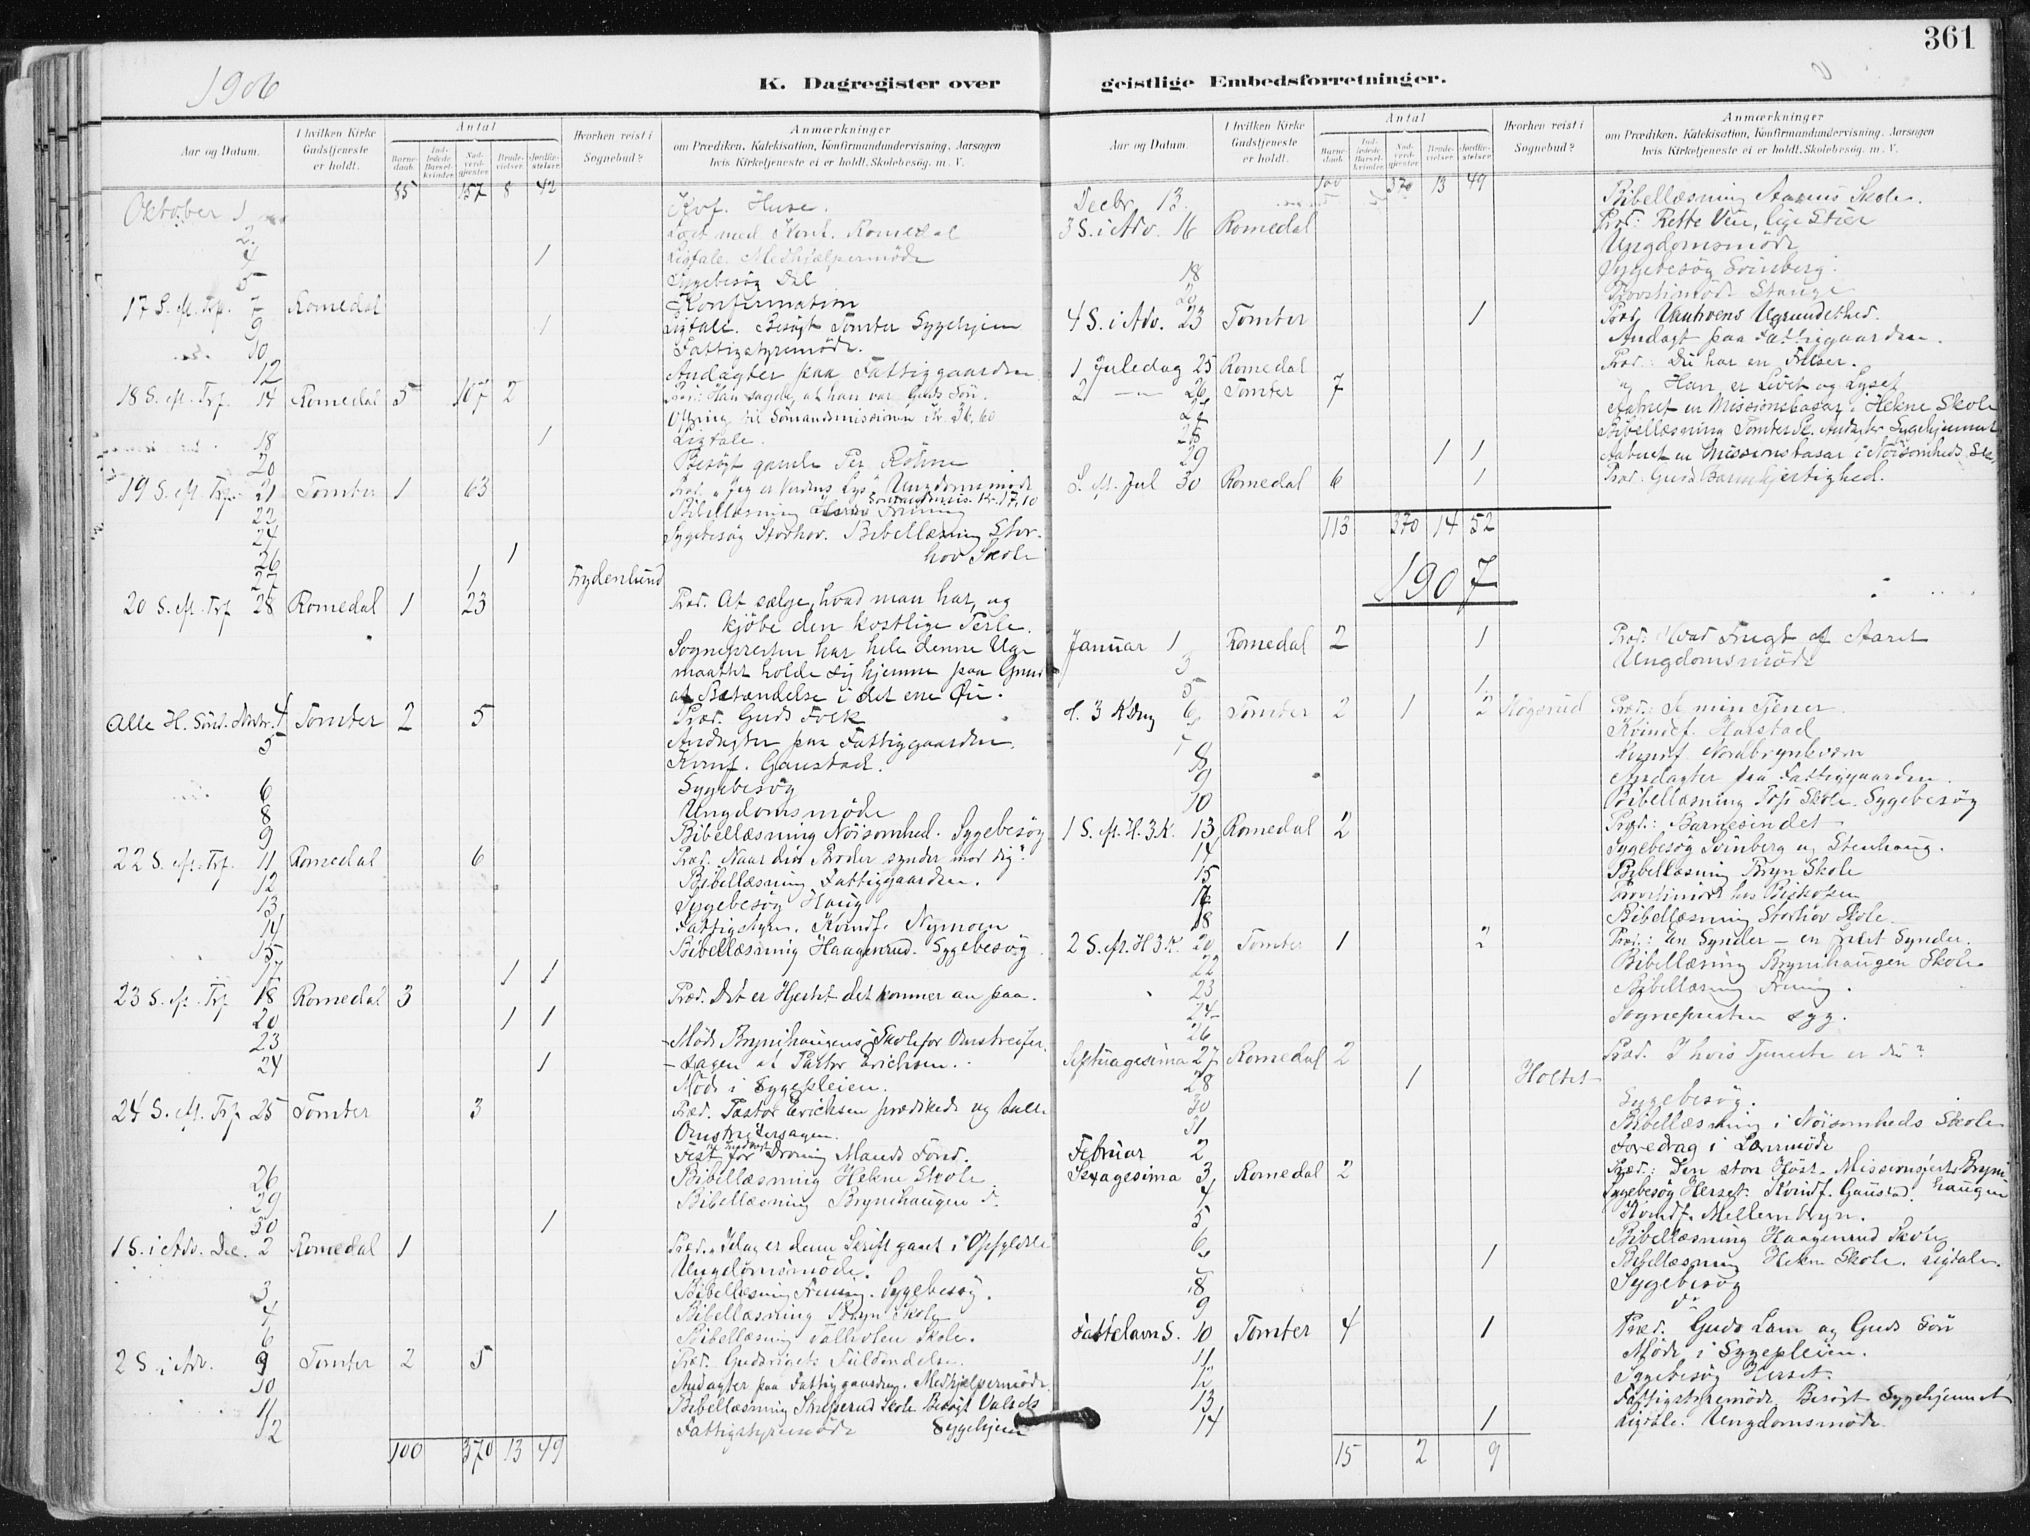 361
1906
K. Dagregister over geistlige Embedsforretninger.
Aar og Datum.
I hvilken Kirke Gudstjeneste er holdt.
Antal
Barnedaab.
Indledede Barselkvinder.
Nadverdgjæster.
Brudevielser.
Jordfæstelser.
Hvorhen reist i Sognebud?
Anmærkninger
om Prædiken, Katekisation, Konfirmandundervisning, Aarsagen
hvis Kirketjeneste ei er holdt. Skolebesøg. m. V.
85 157 8 42
Oktober 1
2
4 1 Ligtale. Medhjælpermøde
5 Sygebesøg Dal
17 S. ef. Trf. 7 Romedal Konfirmation
9 1 Ligtale. Besøgt Tomter Sygehjem
10 Fattigstyremøde.
12 Andagter paa Fattiggaarden
18 S. ef. Trf. 14 Romedal 5 107 2 Præd: Han sagde, at han var Guds Søn.
Ofring til Sømandsmissionen Kr. 36,60
18 1 Ligtale.
20 Besøgt gamle Per
19 S. ef. Trf. 21 Tomter 1 63 Præd. "Jeg er Verdens Lys". Ungdomsmøde
22 Bibellæsning Frening
24 Sygebesøg Storhov. Bibellæsning Storhov Skole
26 1
27 1 Frydenlund
20 S. ef. Trf 28 Romedal 1 23 Præd. At sælge, hvad man har, og
kjøbe den kostlige Perle.
Sognepresten har hele denne Uge
maattet holde sig hjemme paa Grund
af Betændelse i det ene Øie.
Alle H. Sønd. Novbr. 4 Tomter 2 5 Præd. Guds Folk
5 Andagter paa Fattiggaarden.
Kvindf. Gaustad.
6 Sygebesøg
8 Ungdomsmøde
9 Bibellæsning Nøisomhed. Sygebesøg
22 S. ef. Trf. 11 Romedal 6 Præd. "Naar din Broder synder mod dig".
12 Bibellæsning Fattiggaarden.
13 Sygebesøg Haug
14 Fattigstyre. Kvindf. Nymoen
15 Bibellæsning Haagenrud. Sygebesøg
17 1 1
23 S. ef. Trf 18 Romedal 3 Præd. Det er Hjertet det kommer an paa.
20 1 1
23 Møde Brynihaugens Skole for Omstreifer-
24 1 sagen af Pastor Erichsen.
Møde i Sygepleien.
24 S. ef. Trf 25 Tomter 3 Præd. Pastor Erichsen prædikede og talte
Omstreifersagen.
Fest for Droning Mauds Fond.
26 Bibellæsning Hekne Skole
29 Bibellæsning Brynihaugen d.
30 1
1 S. i Adv. Dec. 2 Romedal 1 Præd. "Idag er denne Skrift gaaet i Opfyldelse"
Ungdomsmøde.
3 Bibellæsning Frening. Sygebesøg.
4 Bibellæsning Bryn Skole
6 Bibellæsning Skole.
2 S. i Adv. 9 Tomter 2 5 Præd. Gudsrigets Fuldendelse.
10 Andagter paa Fattiggaarden. Medhjælpermøde
11 Bibellæsning Skole Besøgt Valset
12 Fattigstyremøde Sygehjem
100 370 13 49
Aar og Datum.
I hvilken Kirke Gudstjeneste er holdt.
Antal
Barnedaab.
Indledede Barselkvinder.
Nadverdgjæster.
Brudevielser.
Jordfæstelser.
Hvorhen reist i Sognebud?
Anmærkninger
om Prædiken, Katekisation, Konfirmandundervisning, Aarsagen
hvis Kirketjeneste ei er holdt. Skolebesøg. m. V.
100 370 13 49
Decbr. 13. Bibellæsning Aarnes Skole.
3 S. i Adv. 16 Romedal Præd: Rette Veie, lige Stier
Ungdomsmøde
18 Sygebesøg Svinberg.
20 Provstimøde Stange
4 S. i Adv. 23 Tomter 1 Præd. Vantroens Ugrundethed.
Andagt paa Fattiggaarden.
1 Juledag 25 Romedal Præd.: Du har en Frelser.
2 — 26 Tomter 7 " Han er Livet og Lyset
27 Aabnet en Missionsbasar i Hekne Skole
28 Bibellæsning Tomter Sk. Andagter Sygehjemmet
29 1 1 Aabnet en Missionsbasar i Nøisomheds Sk.
S. ef. Jul 30 Romedal 6 1 Præd: Guds Barmhjertighed.
113 370 14 52
1907
Januar 1 Romedal 2 1 Præd: Hvad Frugt af Aaret
3 Ungdomsmøde
5 1
H. 3 K Dag 6 Tomter 2 1 2 Høgsrud Præd: Se min Tjener
7 Kvindef. Harstad
8 Kvindf
9 Andagter paa Fattiggaarden.
10 Bibellæsning Skole. Sygebesøg
1 S. ef. H. 3 K. 13 Romedal 2 Præd: Barnesindet
14 Sygebesøg Svinberg og Stenhaug.
15 Bibellæsning Bryn Skole
Provstimøde hos Biskopen
18 Bibellæsning Storhov Skole.
2 S. ef. H 3 K. 20 Tomter 1 2 Præd: En Synder – en frelst Synder.
22 Bibellæsning Brynihaugen Skole
23 Bibellæsning Frening.
24 Sognepresten syg.
26
Septuagesima 27 Romedal 2 Præd. I hvis Tjeneste er du?
28 1 Holtet
30 Sygebesøg.
31 Bibellæsning i Nøisomheds Skole
Februar 2 Foredrag i Læremøde
Sexagesima 3 Romedal 2 Præd.: Den store Høst. Brynihaugen
4 Sygebesøg Herset. Kvindf. Gaustad.
5 Kvindf. Mellem Bryn.
6 Bibellæsning Haagenrud Skole
1 Bibellæsning Hekne Skole. Ligtale.
8 Sygebesøg
9 do
Fastelavns S. 10 Tomter 4 1 Præd. Guds Lam og Guds Søn
11 Møde i Sygepleien.
12 Sygebesøg Herset.
13 Fattigstyremøde. Besøgt Sygehjemmet
14 1 Ligtale. Ungdomsmøde
15 2 9